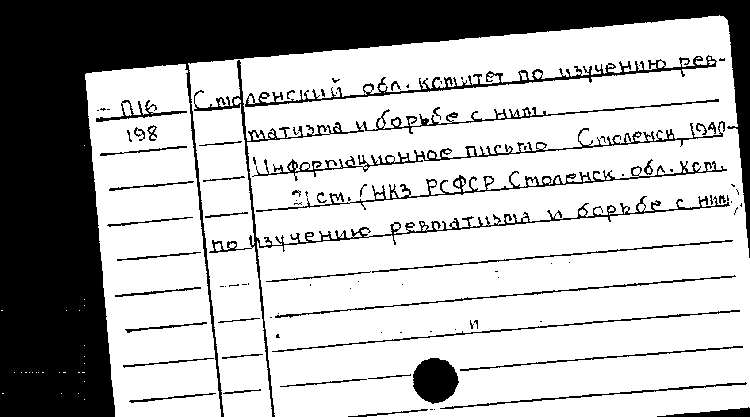 П16 Смоленский обл. комитет по изучению рев-
198 матизма и борьбе с ним.
Информационное письмо Смоленск, 1940-
21 ст. (НКЗ РСФСР. Смоленск. обл. ком.
по изучению ревматизма и борьбе с ним)
п